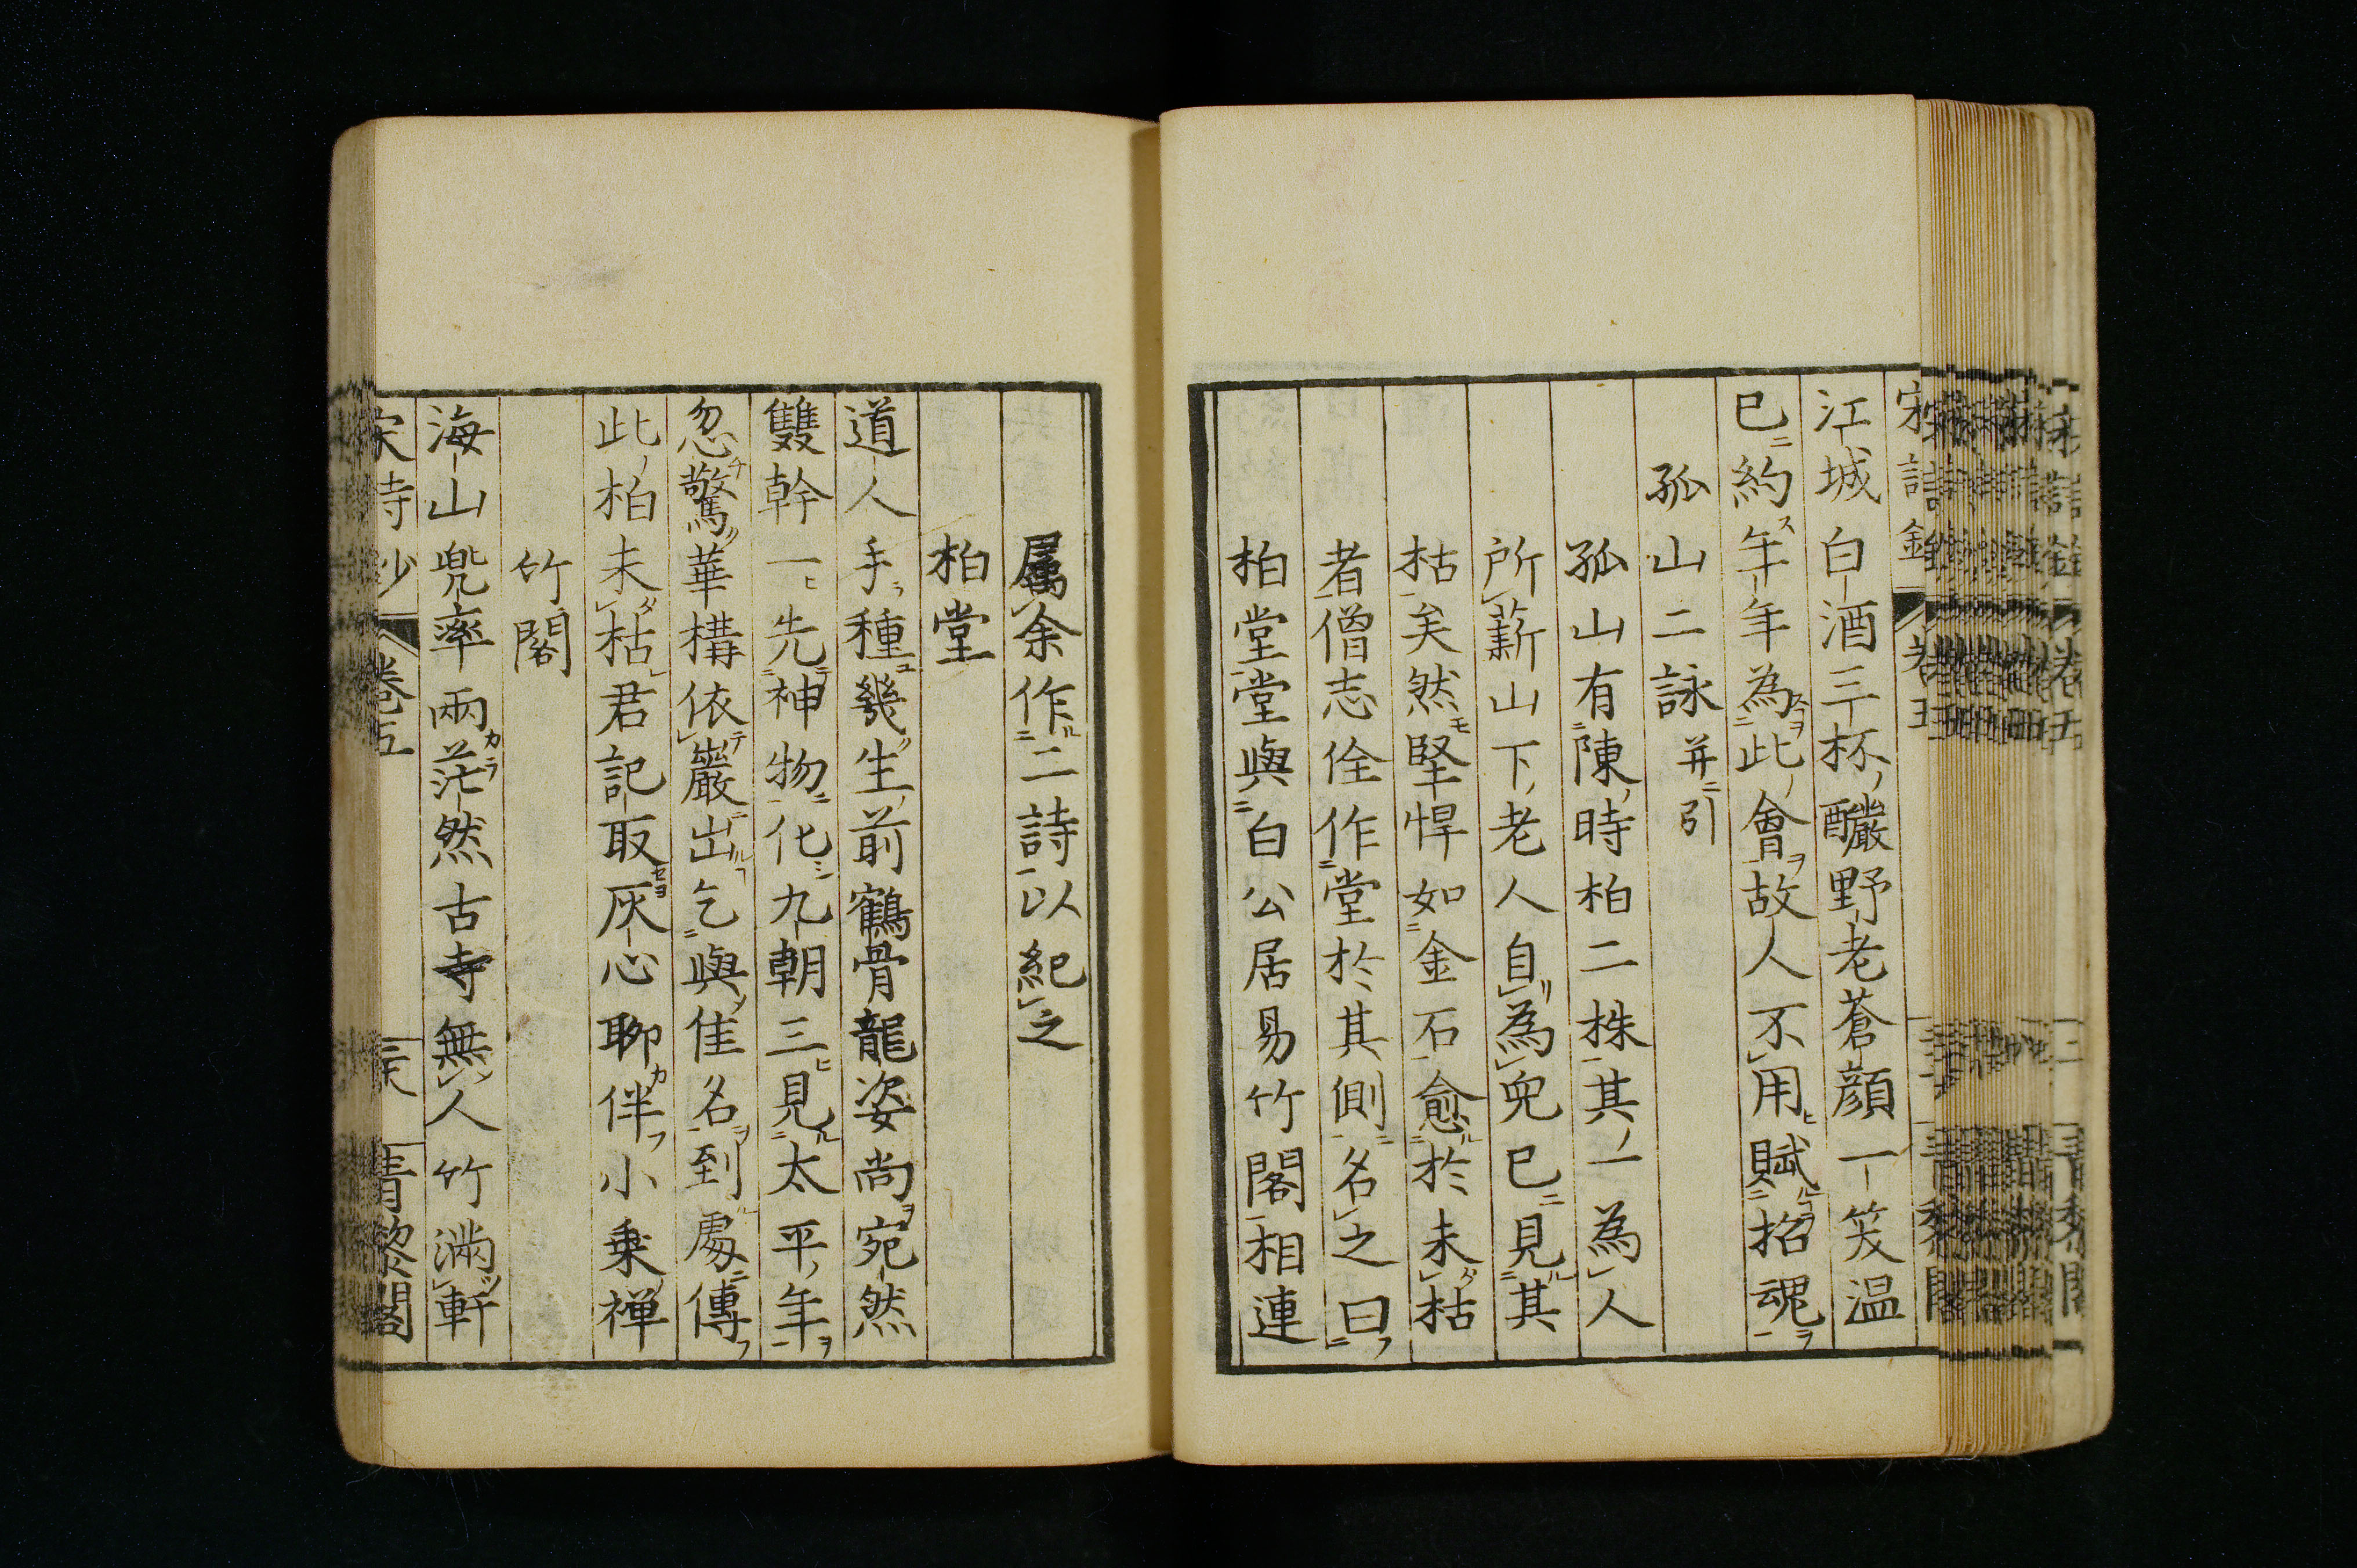 江城白酒三杯釅野老蒼顔一笑温
已約年年為此會故人不用賦招魂
孤山二詠并引
孤山有陳時柏二株其一為人
所薪山下老人自為兒已見其
枯矣然堅悍如金石愈於未枯
者僧志佺作堂於其側名之曰
柏堂堂與白公居易竹閣相連
属余作二詩以紀之
柏堂
道人手種幾生前鶴骨龍姿尚宛然
雙幹一先神物化九朝三見太平年
忽驚華構依巖出乞與佳名到處傳
此柏未枯君記取灰心聊伴小乗禅
竹閣
海山兜率兩茫然古寺無人竹滿軒
宋詩鈔
卷五